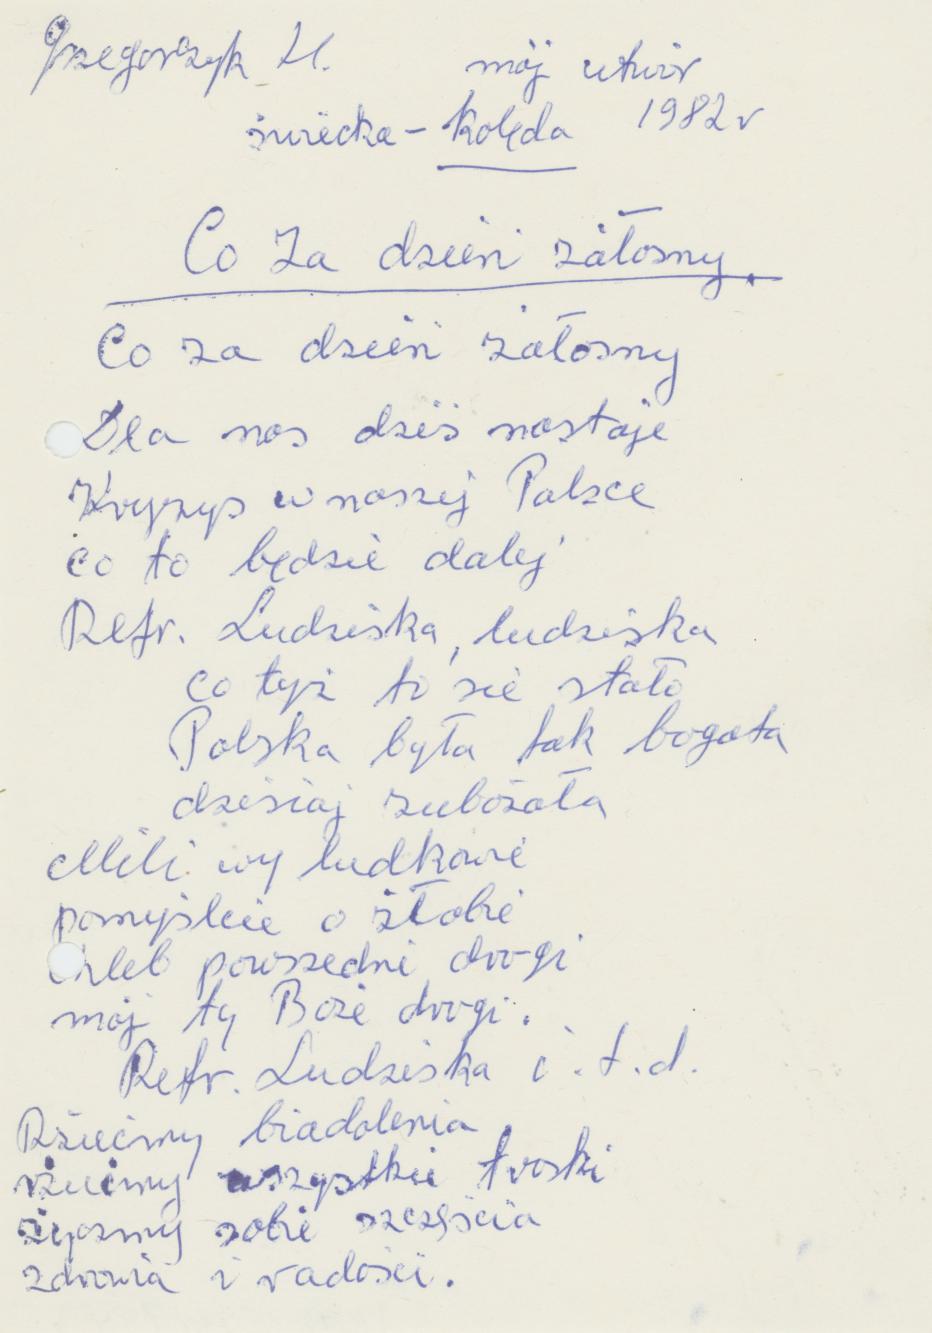 Grzegorczyk H. mój utwór
świecka - kolęda 1982 r
Co za dzień żałosny.
Co za dzień żałosny
Dla nas dziś nastaje
Kryzys w naszej Polsce
co to będzie dalej
Refr. Ludziska, ludziska
co tyż to sie stało
Polska była tak bogata
dzisiaj zubożała
Mili wy ludkowie
pomyślcie o żłobie
Chleb powszedni drogi
mój ty Boże drogi.
Refr. Ludziska i.t.d.
Rzućmy biadolenia
rzućmy wszystkie troski
życzmy sobie szczęścia
zdrowia i radości.